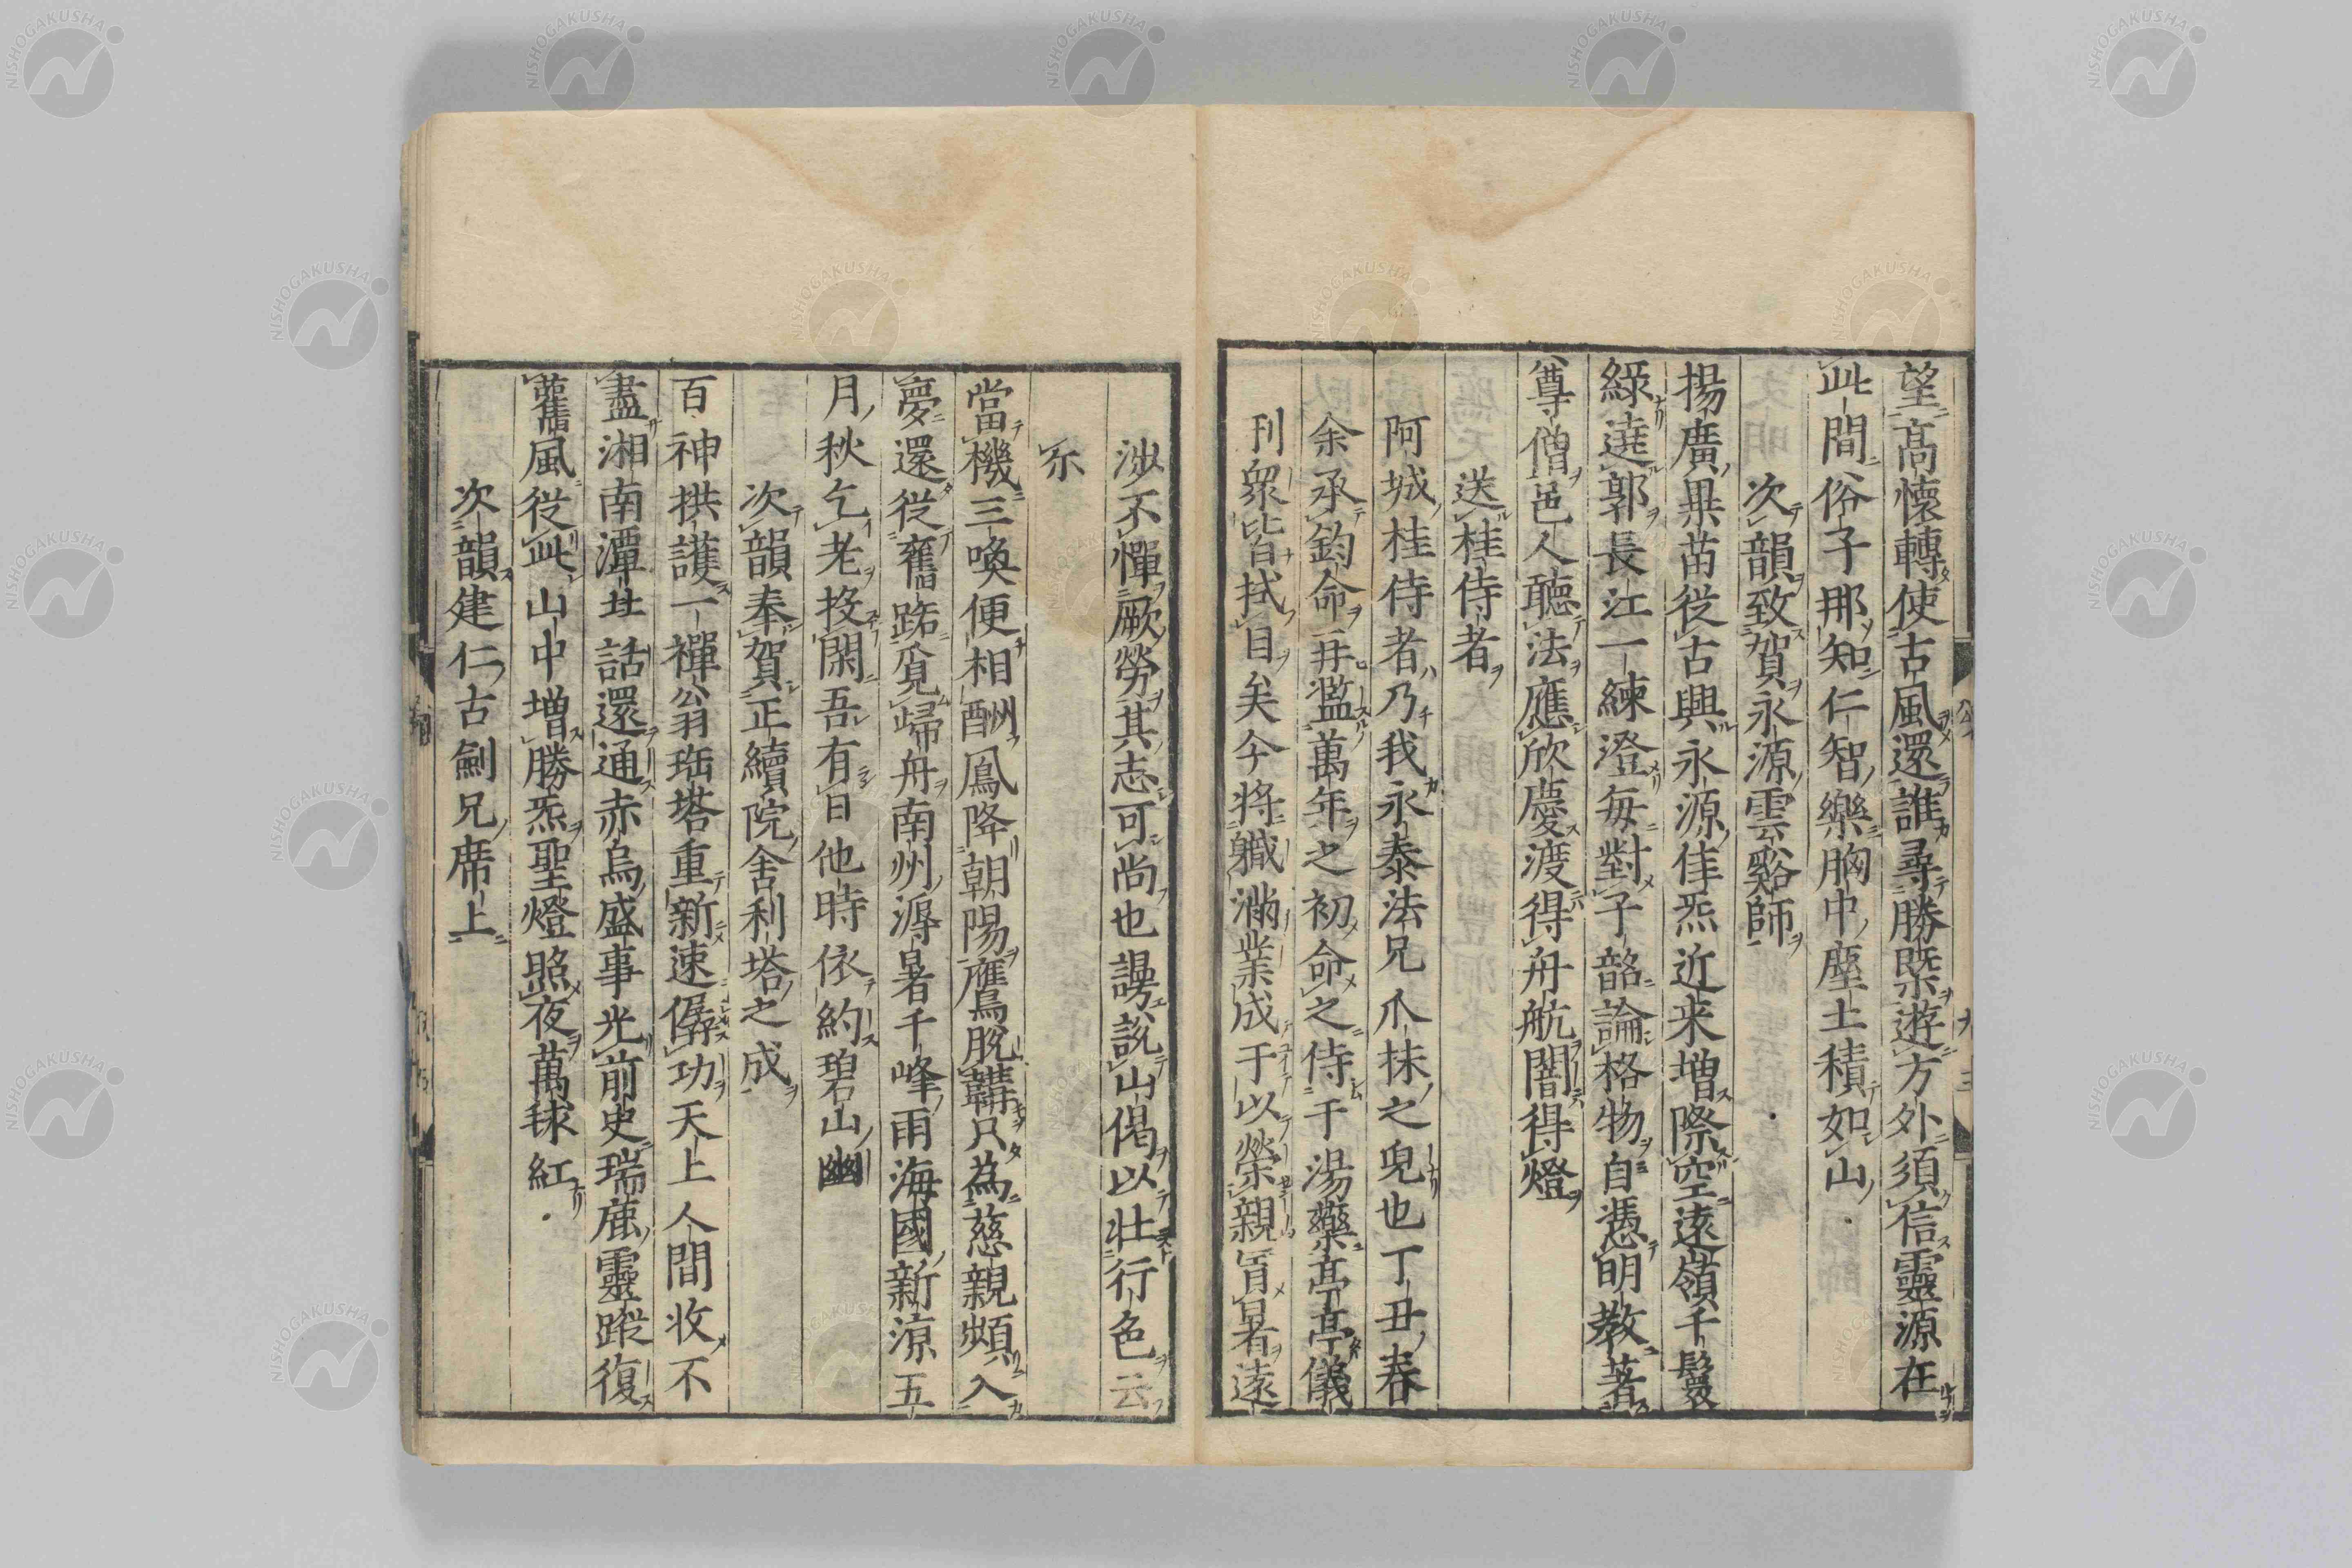 望高懷轉使古風還誰尋勝槩遊方外須信靈源在
此間俗子那知仁智樂胸中塵土積如山
次韻致賀永源雲谿師
揚廣異苗從古興永源佳炁近来増際空遠嶺千鬟
緑遶郭長江一練澄毎對子韶論格物自憑明教著
尊僧邑人聽法應欣慶渡得舟航闇得燈
送桂侍者
阿城桂侍者乃我永泰法兄爪抹之皃也丁丑春
余承鈞命再濫萬年之初命之侍于湯藥亭亭儀
刊衆皆拭目矣今將職滿業成于以榮親㫖暑遠
涉不憚厥勞其志可尚也謾説山偈以壮行色云
尓
當機三喚便相酬鳳降朝陽鷹脫鞲只為慈親頻入
夣還從舊路覓歸舟南州溽暑千峰雨海國新涼五
月秋乞老投閑吾有日他時依約碧山幽
次韻奉賀正續院舍利塔之成
百神拱護一禪翁珤塔重新速僝功天上人間收不
盡湘南潭北話還通赤烏盛事光前史瑞鹿靈蹤復
舊風從此山中増勝炁聖燈照夜萬毬紅
次韻建仁古劍兄席上